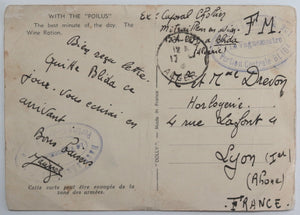 WITH THE "POILUS"
The best minute of, the day. The
Wine Ration.
Bien reçu lettre
Quitte Blida ce
jour. Vous écrirai en
arrivant
Bons baisers
Cette carte peut être envoyée de la
zone des armées.
"DOLLY" - Made in France
Ex: Caporal
F.M.
17
M et Mme Drevon
Horlogerie
4 rue Lafont 4
Lyon (Ier)
(Rhône)
FRANCE.